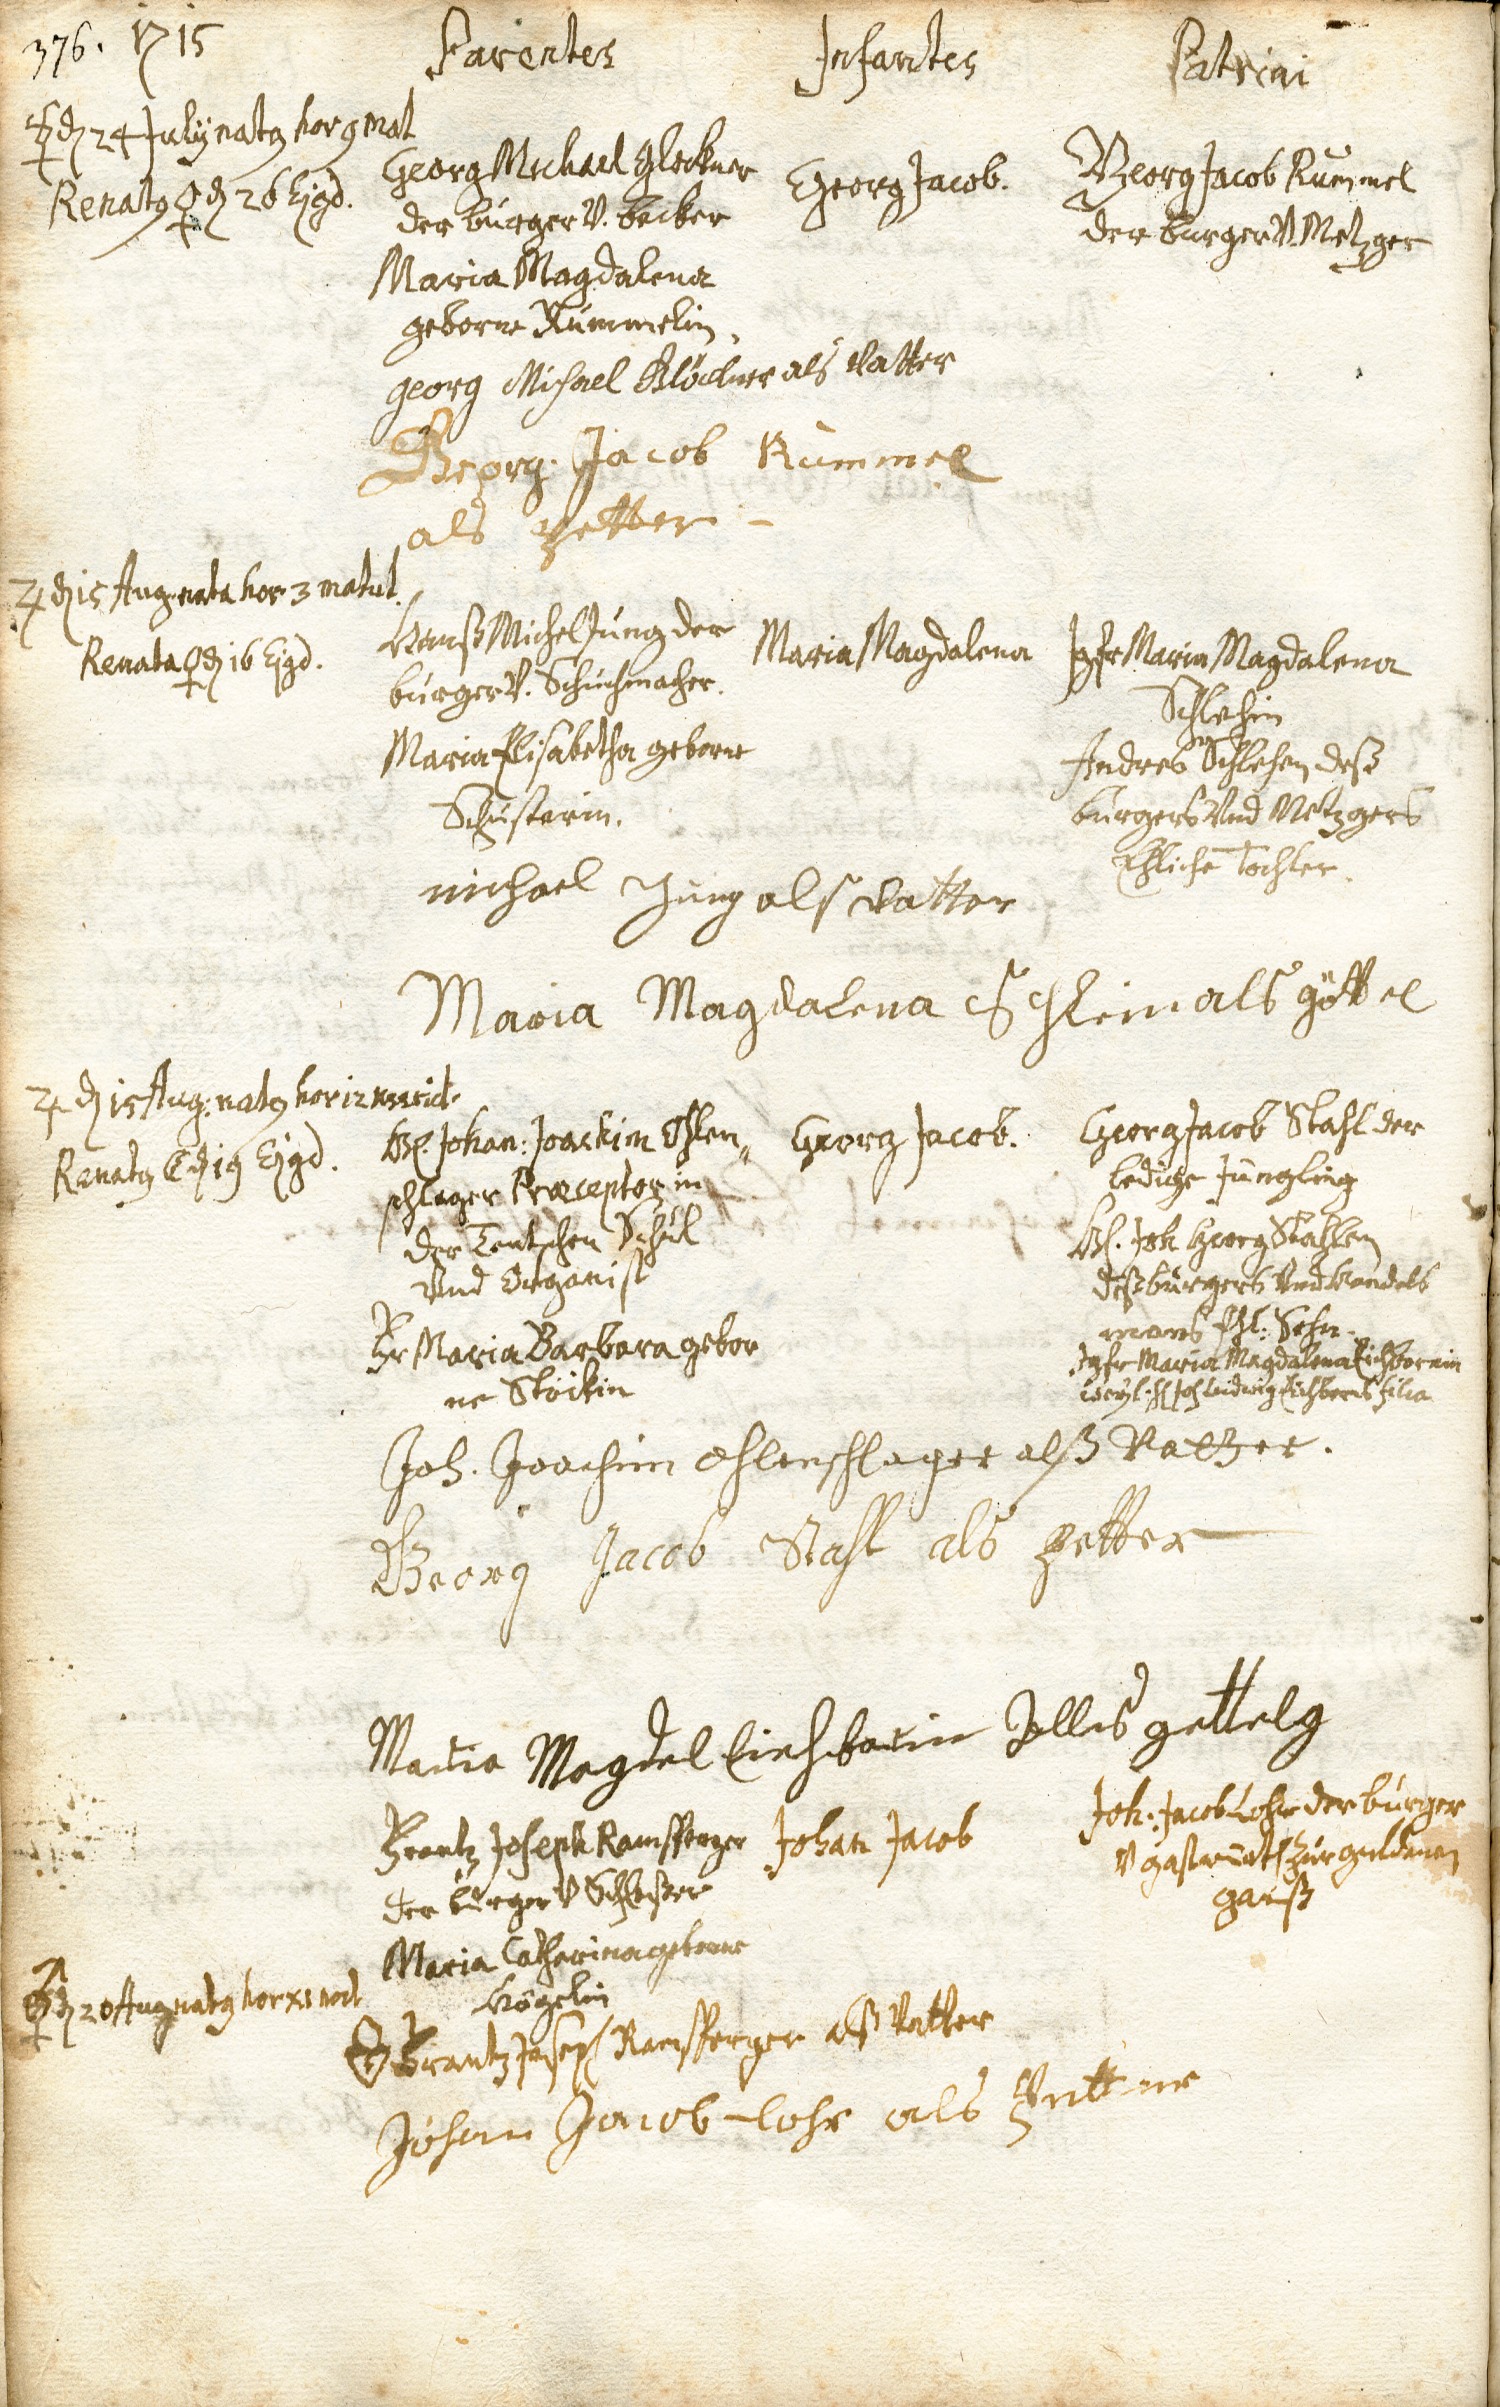 376. 1715
Parentes
Infantes
Patrini
☿ d 24 July natg hor 9 mat
Renatg ♀ d 26 Ejgd.
Georg Michael Gleckner
der burger V. becker
Maria Magdalena
geborne Rummelin,
Georg Jacob.
Georg Jacob Rummel
der burger V. Metzger
georg Michael Glöckner als Vatter
Georg Jacob Kümmel
als Petter
♃ d 15 Aug. nata hor 3 matut.
Renata ♀ d 16 Ejgd.
Hanß Michel Jung der
burger V. Schuchmacher.
Maria Elisabetha geborne
Schusterin.
Maria Magdalena
Jgfr Maria Magdalena
Schlehin
Andres Schlehen deß
burgers Vnd Metzgers
Ehliche Tochter.
michael Jung alß Vatter
Maria Magdalena Schlein als göttel
♃ d 15 Aug. natg hor 12 merid.
Renatg ☾ d 19 Ejgd.
H. Johan: Joachim Ohlen„
schlager Præceptor in
der Teutschen Schul
Vnd Organist
Fr Maria Barbara gebor
ne Stöckin
Georg Jacob.
Georg Jacob Stahl der
ledige Jüngling
H. Joh Georg Stahlen
deß burgers Vnd handels
mans Ehl: Sohn.
Jgfr Maria Magdalena Eichbornin
weyl. H Joh Ludwig Eichborns filia
Joh. Joachim Ohlenschlager alß Vatter.
Georg Jacob Stahl als Petter
Maria Magdel Eichbornin Jllls gettelg
Frantz Joseph Ramsperger
der burger V Schloßer
Maria Catharina geborne
Vögelin
Johan Jacob
Joh: Jacob Lohr der burger
V gastwürt Zur guldenen
ganß
♂ d 20 Aug natg hor XI noct
Frantz Joseph Ramsperger alß Vatter
Johan Jacob Lohr als Pettter